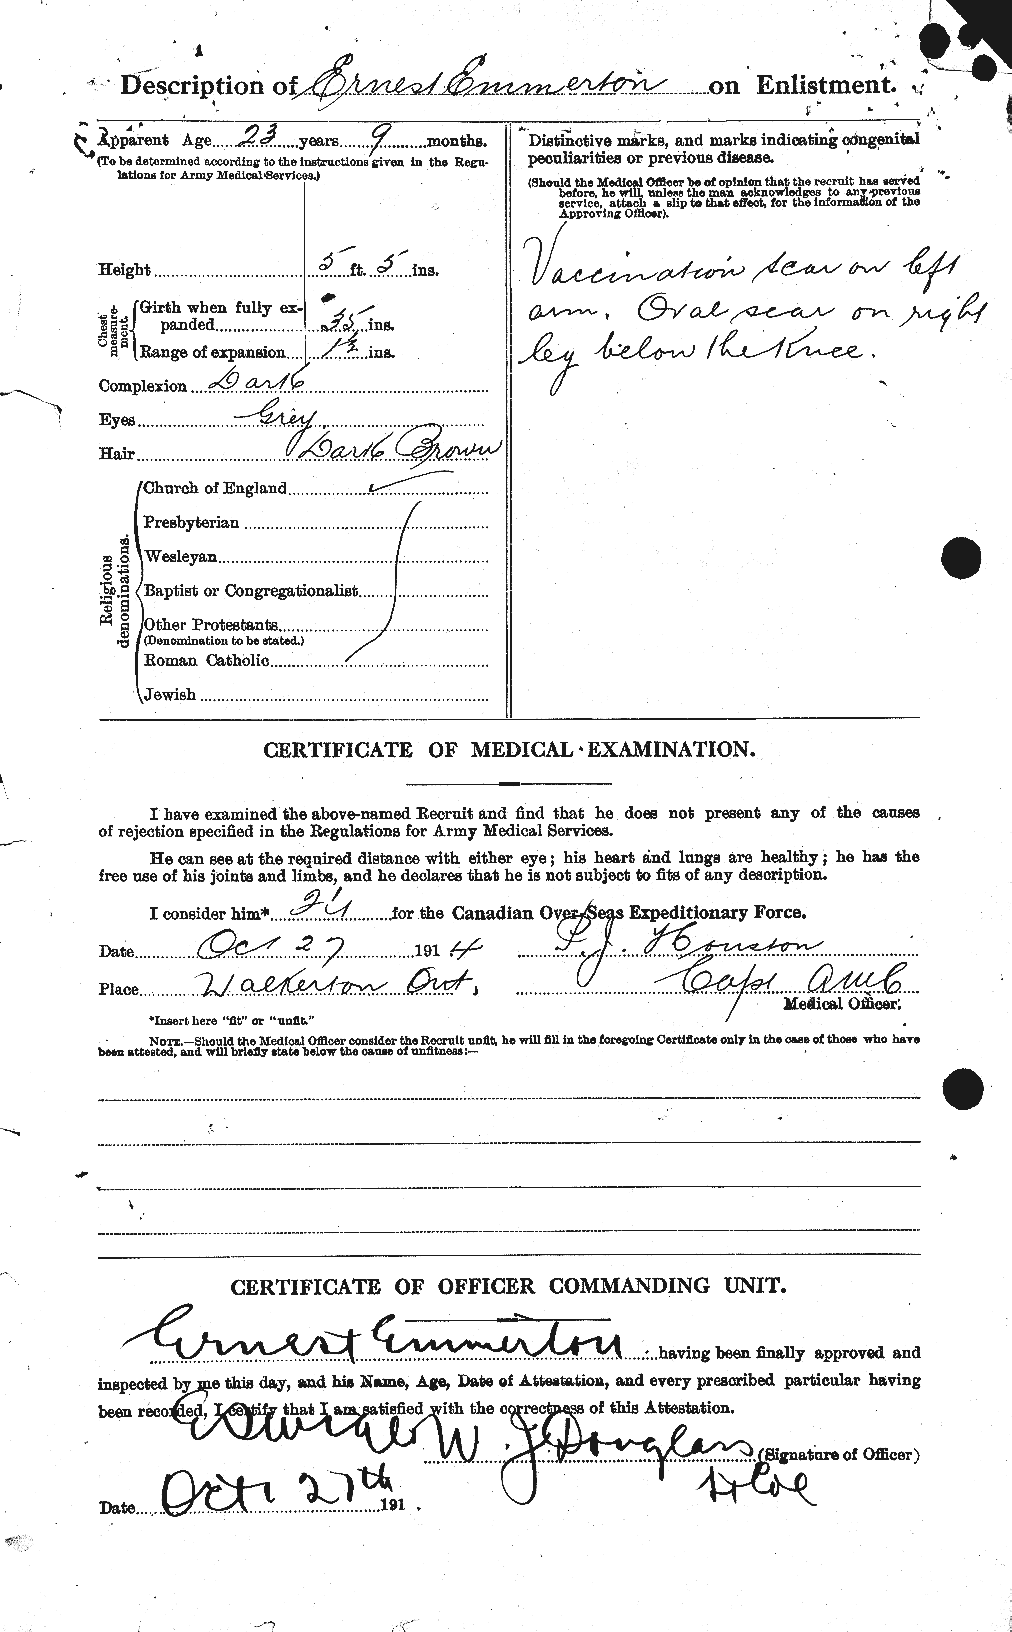 Description of Ernest Emmerton on Enlistment.
Apparent Age 23 years 9 months.
(To be determined according to the instructions given in the Regu-
lations for Army Medical Services.)
Height 5 ft. 5 ins.
Chest measure-
ment.
Girth when fully ex-
panded 35 ins.
Range of expansion 1½ ins.
Complexion Dark
Eyes Grey
Hair Dark Brown
Religious
denominations.
Church of England
Presbyterian
Wesleyan
Baptist or Congregationalist
Other Protestants
(Denomination to be stated.)
Roman Catholic
Jewish
Distinctive marks, and marks indicating congenital
peculiarities or previous disease.
(Should the Medical Officer be of opinion that the recruit has served
before, he will, unless the man acknowledges to any previous
service, attach a slip to that effect, for the information of the
Approving Officer).
Vaccination scar on left
arm. Oval scar on right
leg below the Knee.
CERTIFICATE OF MEDICAL EXAMINATION.
I have examined the above-named Recruit and find that he does not present any of the causes
of rejection specified in the Regulations for Army Medical Services.
He can see at the required distance with either eye; his heart and lungs are healthy; he has the
free use of his joints and limbs, and he declares that he is not subject to fits of any description.
I consider him* fit for the Canadian Over-Seas Expeditionary Force.
Date Oct 27 1914 P.J. Houston
Place Walkerton Ont, Capt AMC
Medical Officer.
*Insert here "fit" or "unfit."
NOTE.—Should the Medical Officer consider the Recruit unfit, he will fill in the foregoing Certificate only in the case of those who have
been attested, and will briefly state below the cause of unfitness:—
CERTIFICATE OF OFFICER COMMANDING UNIT.
Ernest Emmerton having been finally approved and
inspected by me this day, and his Name, Age, Date of Attestation, and every prescribed particular having
been recorded, I certify that I am satisfied with the correctness of this Attestation.
W. J. Douglass (Signature of Officer)
Date Oct 27th 191 .